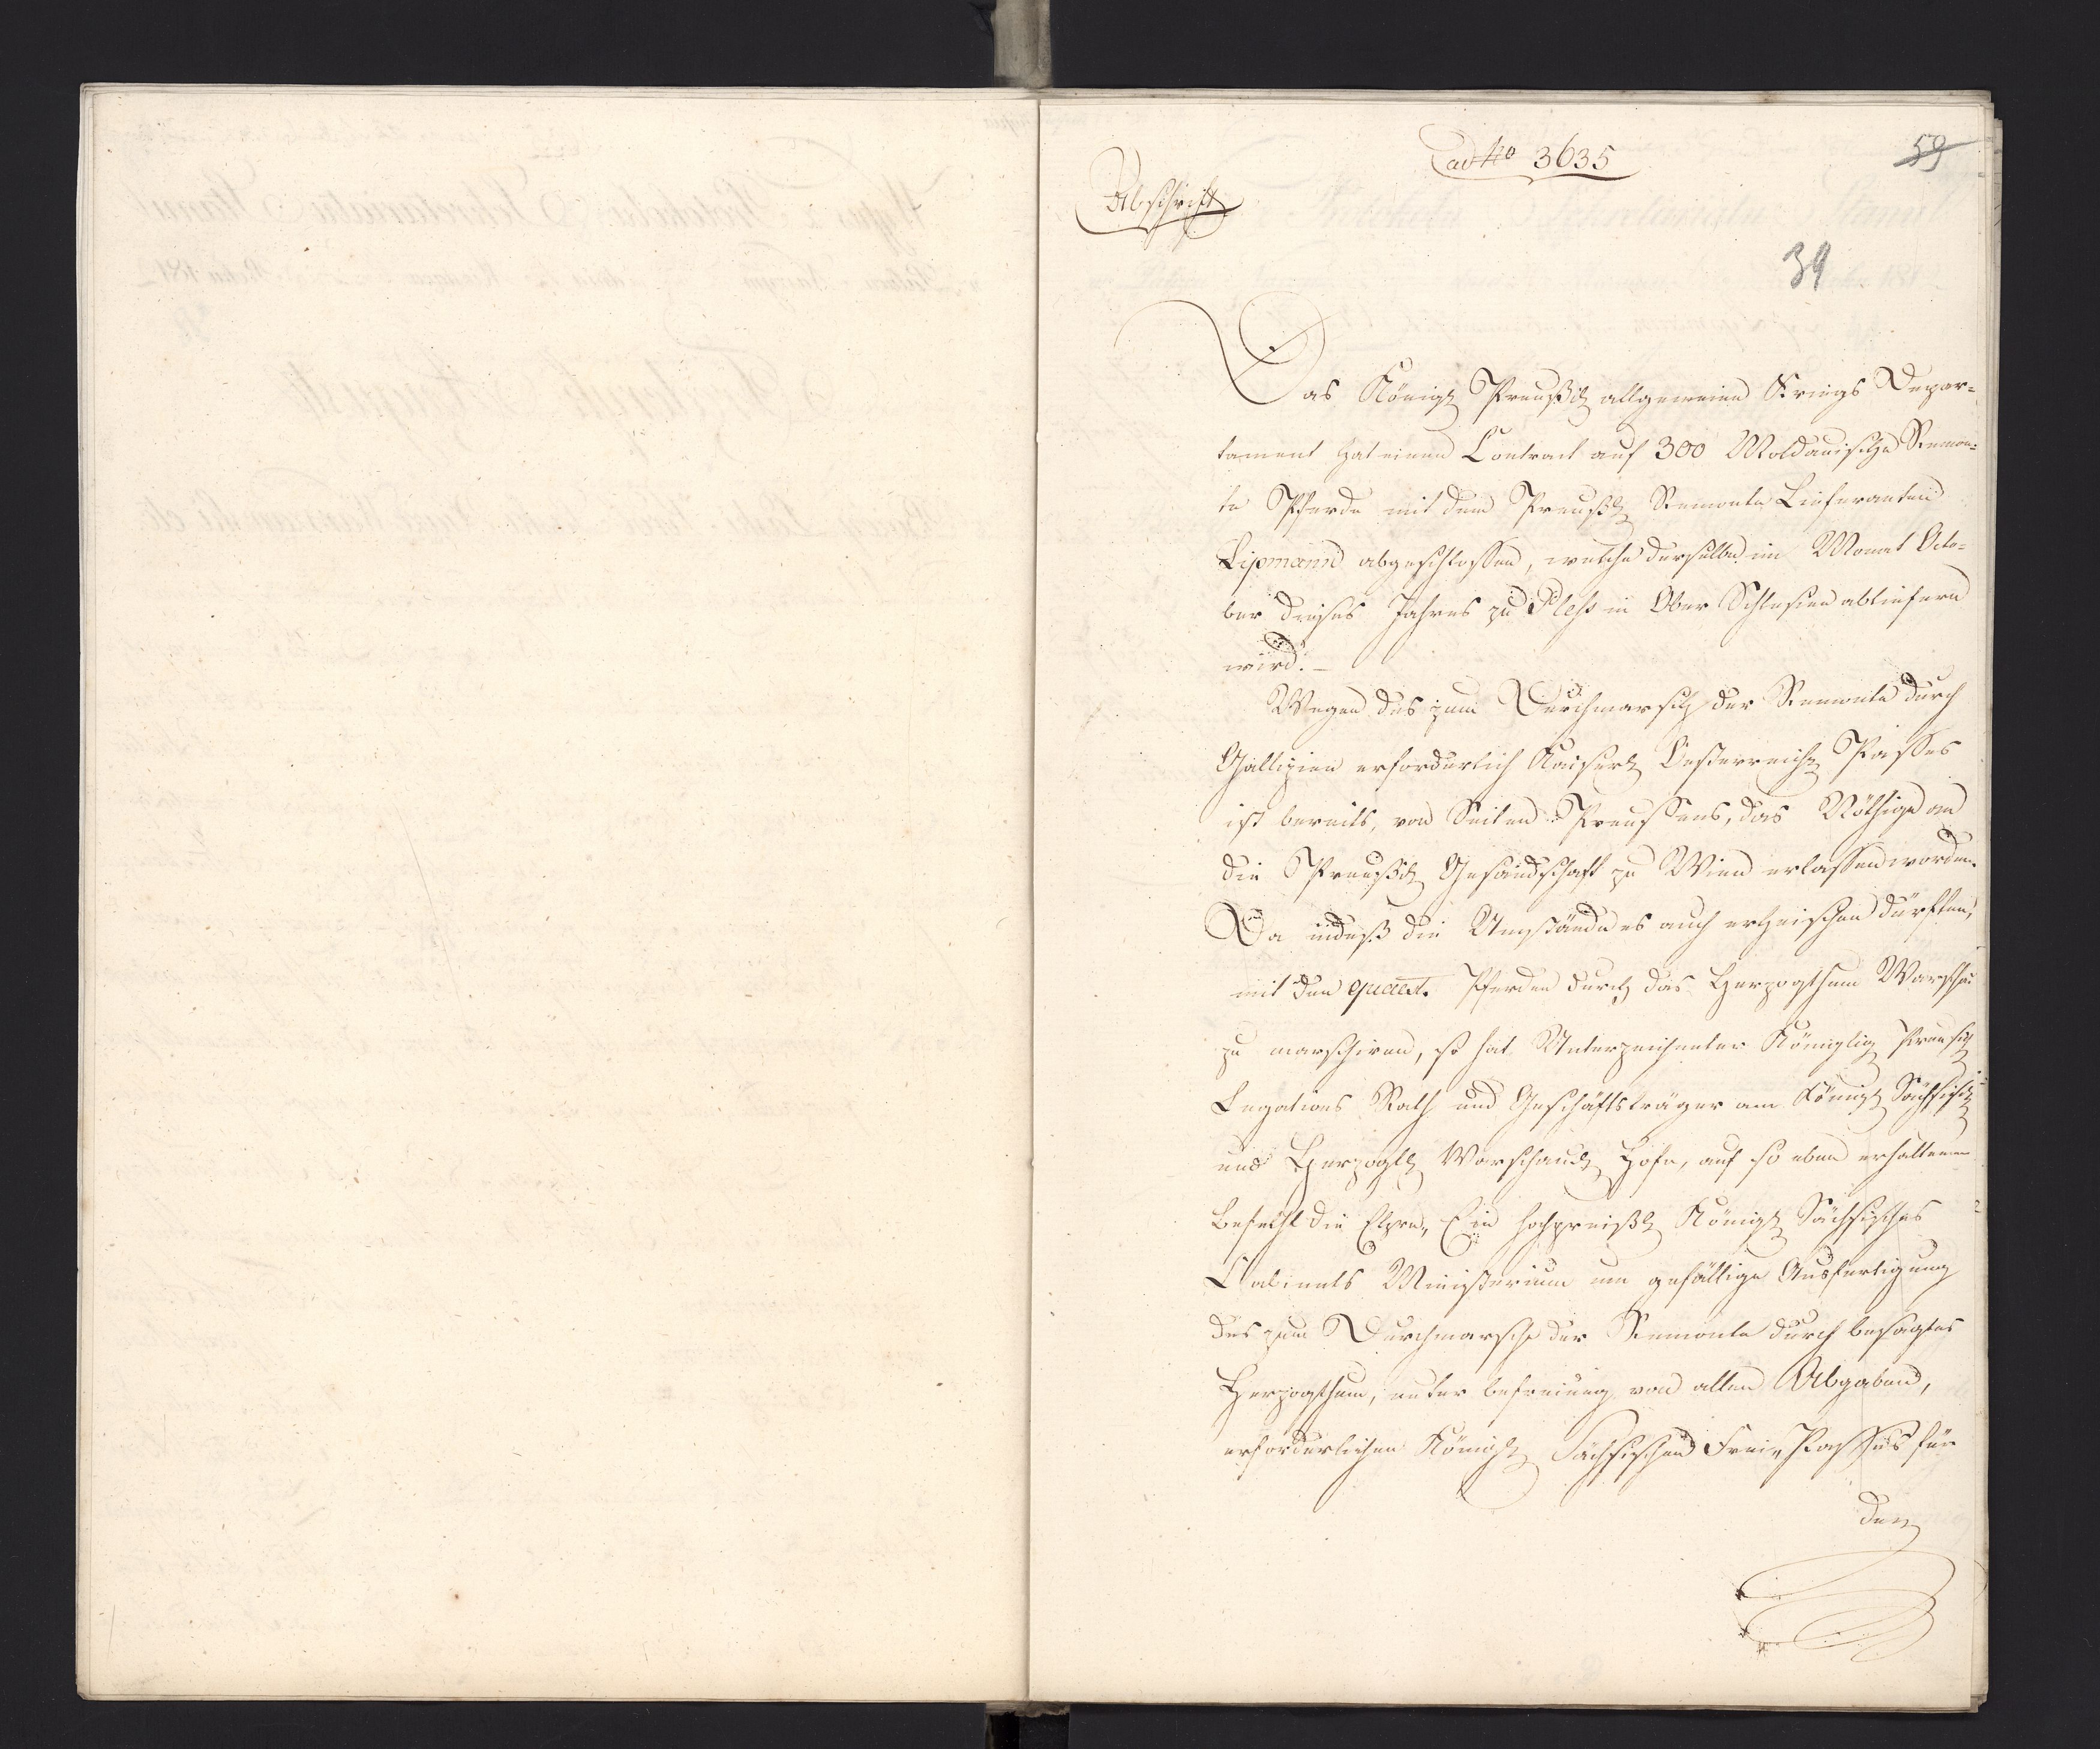 ad No 3635
59
Abschrift
39
Das Königl Preußl allgemeine Kriegs Depar=
tament hat einen Contract auf 300 Moldauische Remon=
te Pferde mit dem Preußl Remonte Lieferanten
Lipmann abgeschlossen, welche derselbe im Monat Octo=
ber dieses Jahres zu Pleß in Ober Schlesien abliefern
wird. –
Wegen des zum Durchmarsch der Remonte durch
Gallizien erforderlich Kaiserl Oesterreich Passes
ist bereits, von Seiten Preussens, das Nöthige an
die Preußl Gesandschaft zu Wien erlassen worden.
Da indeß die Umstände es auch erheischen dürften,
mit den quaest. Pferden durch das Herzogthum Warschau
zu marschiren, so hat Unterzeichneter Königlich Preußisch
Legations Rath und Geschäftsträger am Königl Sächsisch
und Herzogl Warschaul Hofe, auf so eben erhaltenen
Befehl die Ehre, Ein hochpreißl Königl Sächsisches
Cabinets Ministerium um gefällige Ausfertigung
des zum Durchmarsche der Remonte durch besagtes
Herzogthum, unter Befreiung von allen Abgaben,
erforderlichen Königl Sächsischen Frei-Passes für
den